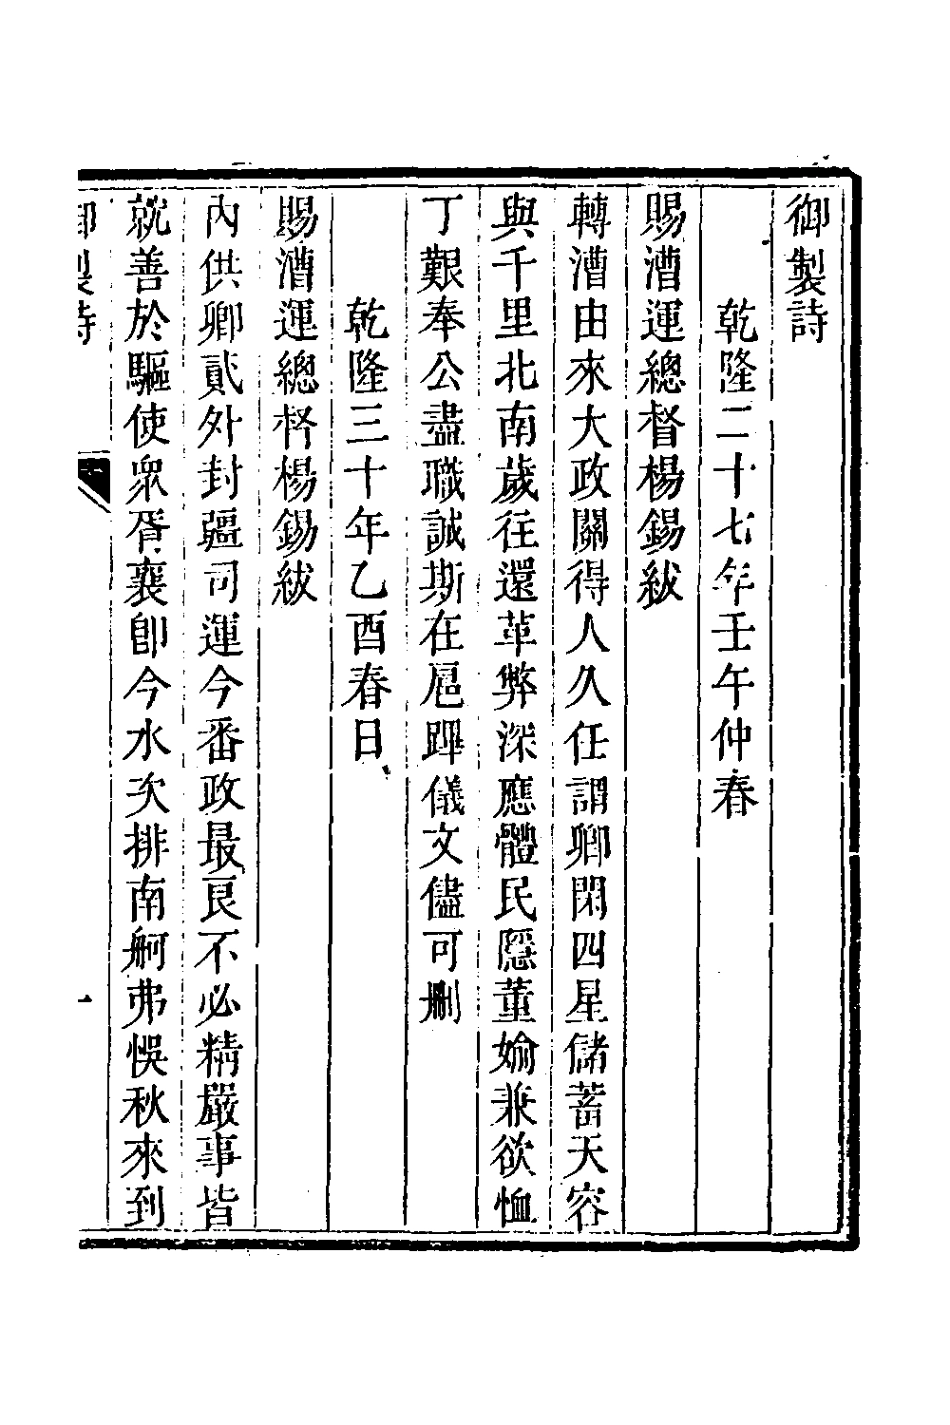 御製詩
乾隆二十七年壬午仲春
賜漕運總督楊錫紱
轉漕由來大政關得人久任謂卿閑四星儲蓄天容
與千里北南歲往還革弊深應體民隱董媮兼欲恤
丁艱奉公盡職誠斯在扈蹕儀文儘可刪
乾隆三十年乙酉春日
賜漕運總督楊錫紱
內供卿貳外封疆司運今番政最良不必精嚴事皆
就善於驅使眾胥襄卽今水次排南舸弗悞秋來到
御製詩
一